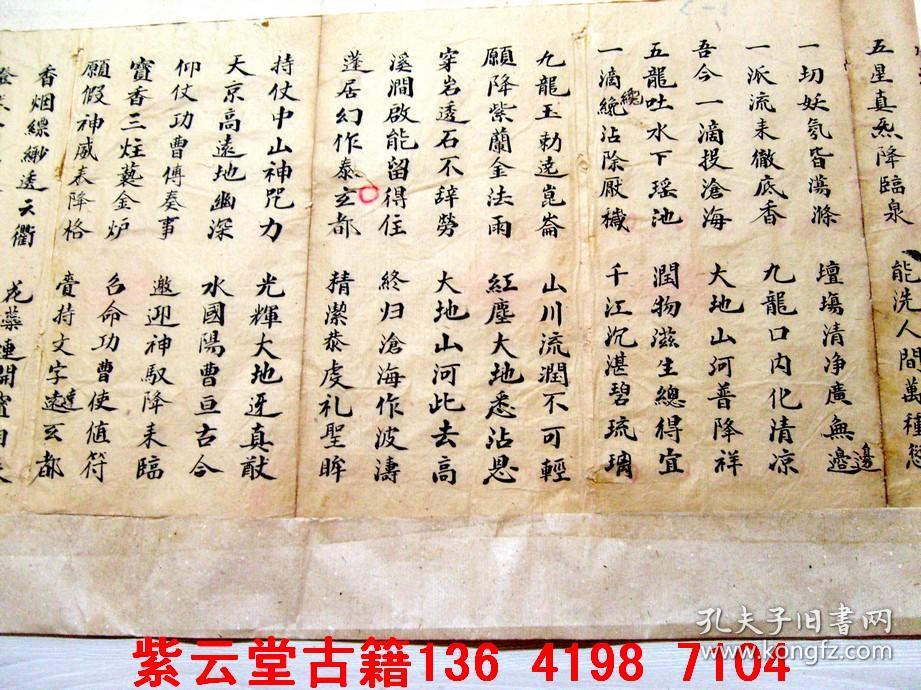 五星真炁降臨泉 能洗人間萬種愆
一切妖氛皆蕩滌 壇場清净廣無邊邊
一派流来徹底香 九龍口内化清凉
吾今一滴投滄海 大地山河普降祥
五龍吐水下瑶池 潤物滋生總得宜
一滴纔纔沾除厭穢 千江沉湛碧琉璃
九龍玉勅遠崑崙 山川流潤不可輕
願降紫蘭金法雨 紅塵大地悉沾恩
穿岩透石不辞勞 大地山河此去高
溪澗啟能留得住 終归滄海作波濤
蓬居幻作泰玄都 精潔恭虔礼聖眸
持仗中山神咒力 光輝大地迓真猷
天京高遠地幽深 水國陽曹亘古今
仰仗功曹傳奏事 邀迎神馭降来臨
寶香三炷爇金炉 召命功曹使值符
願假神威来降格 賫持文字達玄都
香烟縹緲透天衢 花蘂連開寶
孔夫子旧书网
www.kongfz.com
紫云堂古籍136 4198 7104